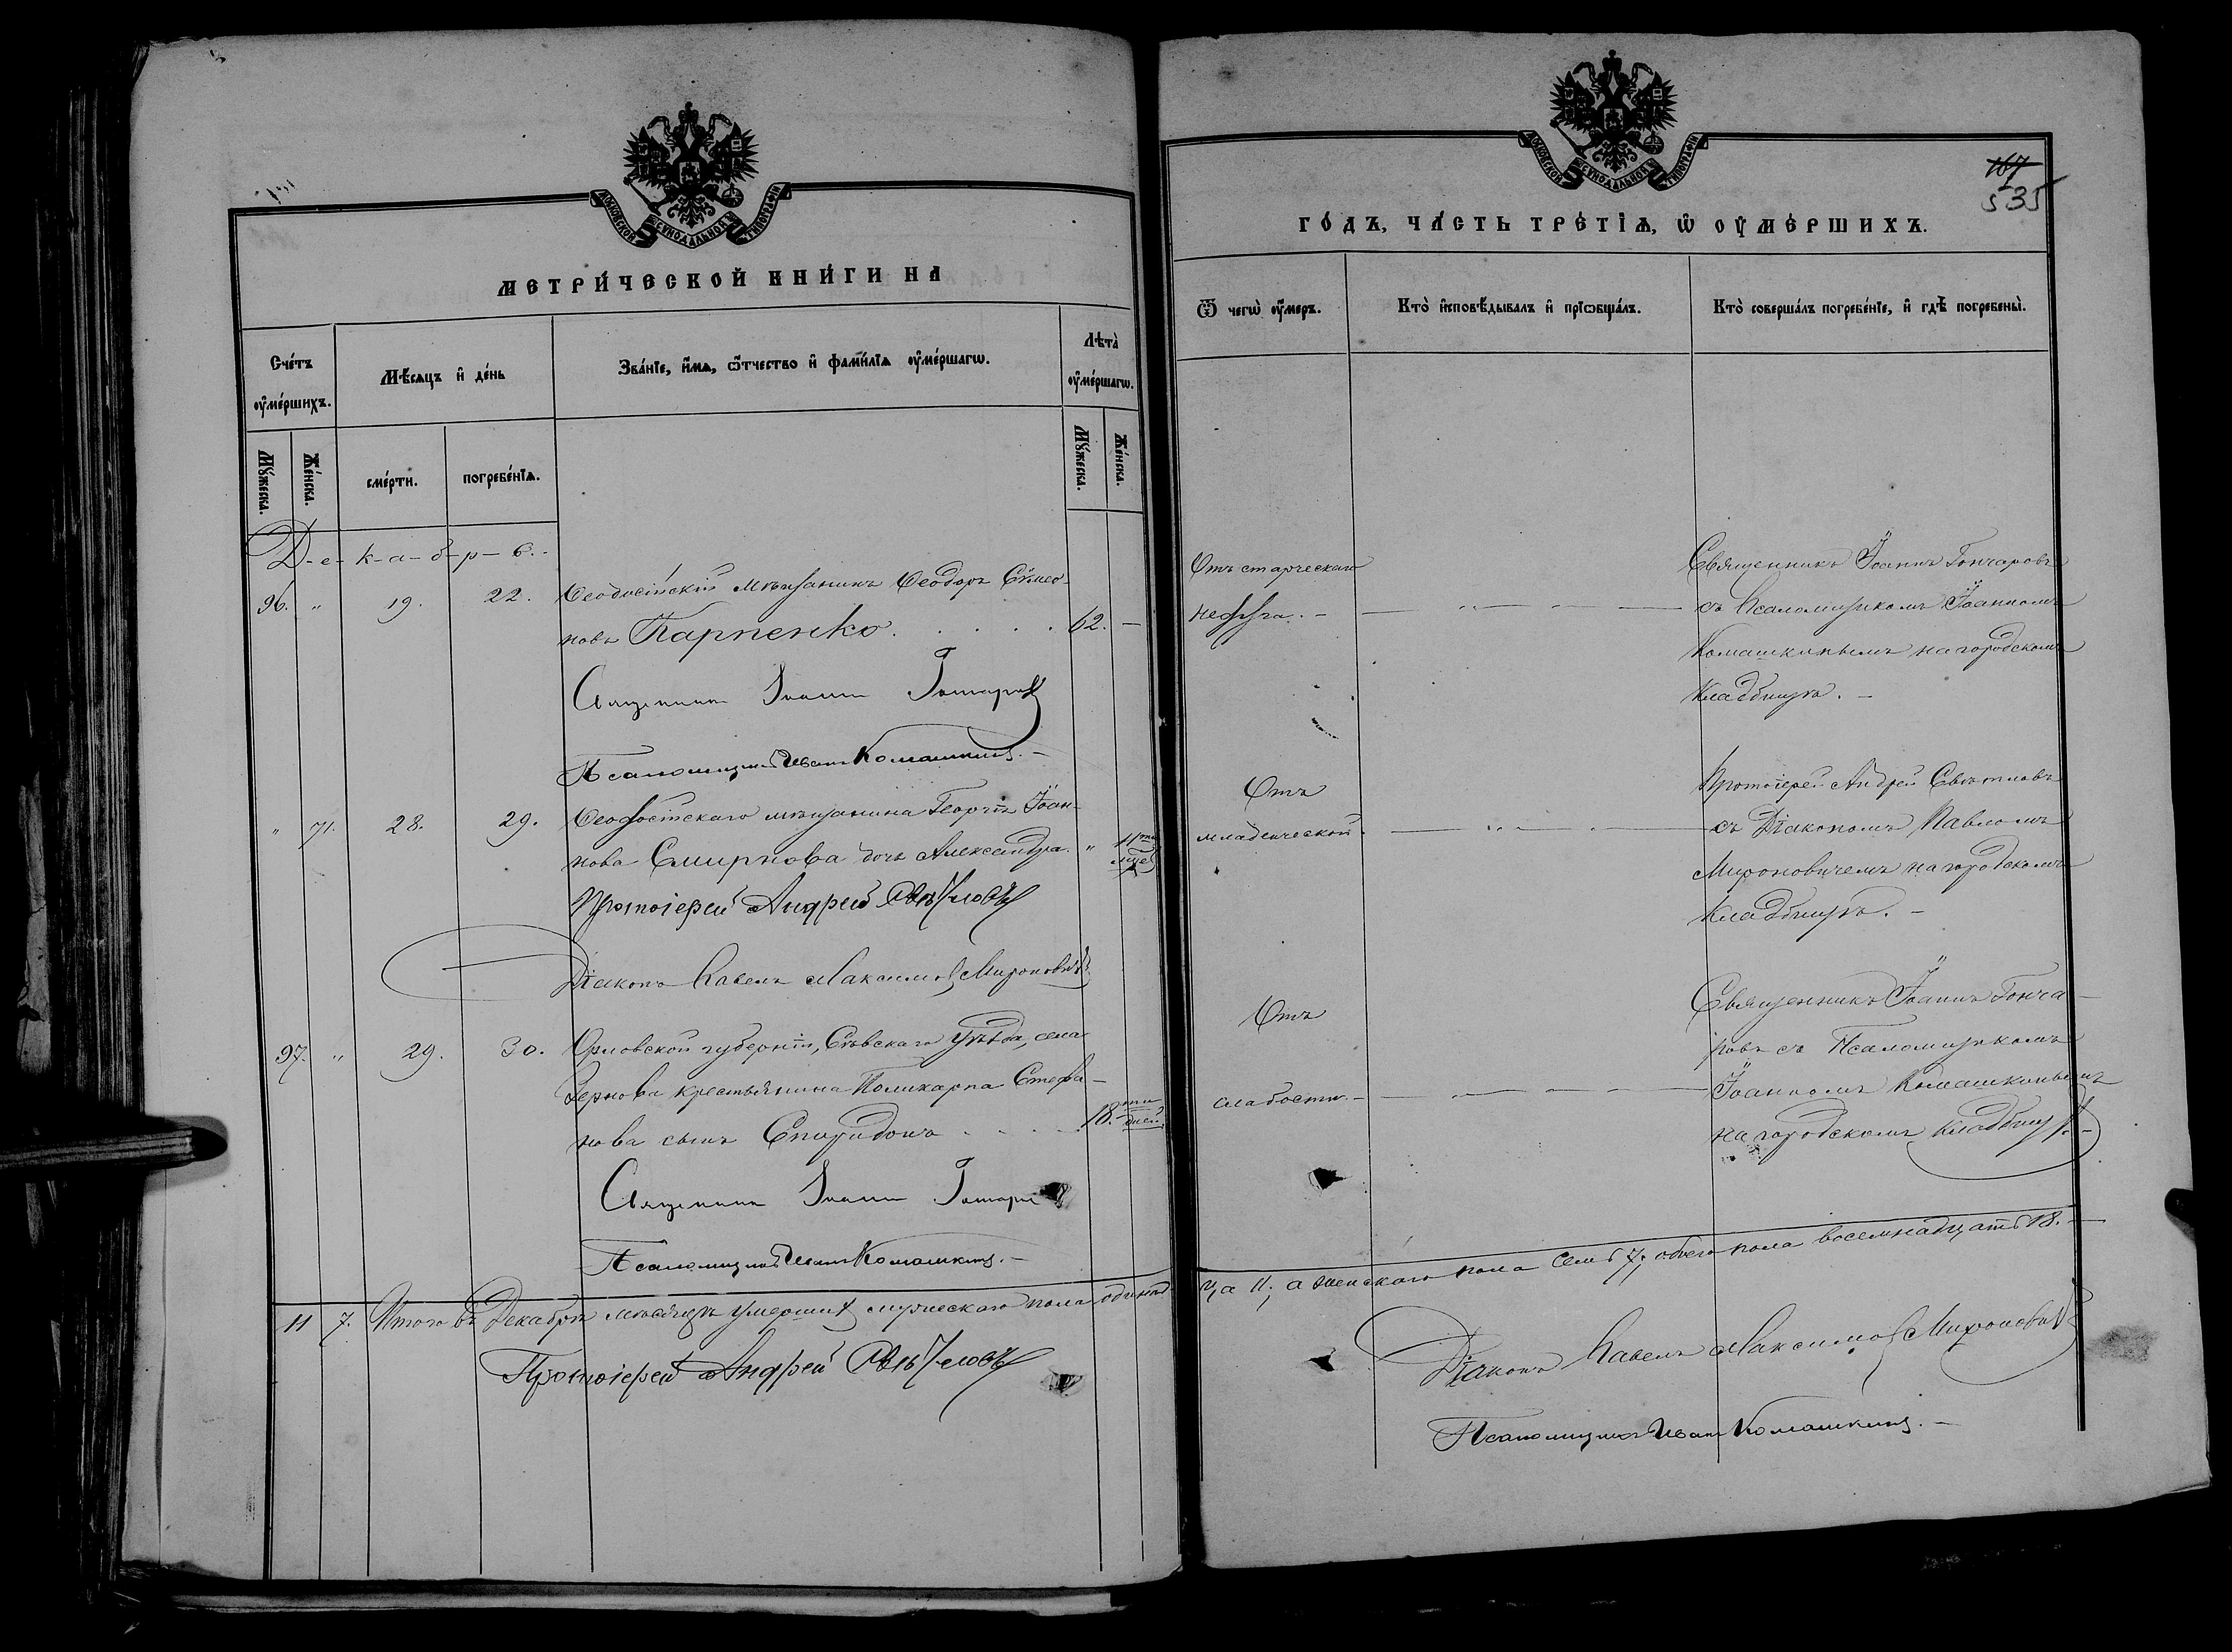 МЕТРИ́ЧЕСКОЙ КНИ́ГИ НА
Сче́тъ ᲂу҆ме́ршихъ.
Мѣ́сяцъ и҆ де́нь
Зва́нїе, и҆́мѧ, ѻ҆́тчество и҆ фами́лїѧ ᲂу҆ме́ршагѡ.
Лѣта̀ ᲂу҆ме́ршагѡ.
Мꙋ́жеска.
Же́нска.
сме́рти.
погребе́нїѧ.
Мꙋ́жеска.
Же́нска.
Д-е-к-а-б-р-ь.
96. " 19. 22. Ѳеодосійскій мѣщанинъ Ѳеодоръ Сѵмео-
новъ Карпенко. 62. —
Священникъ Іоаннъ Гончаровъ
Псаломщикъ Иванъ Комашкинъ.—
" 71. 28. 29. Ѳеодосійскаго мѣщанина Георгія Іоан-
нова Смирнова дочь Александра. " 11ти мѣс.
Протоіерей Андрей Свѣтловъ
Діаконъ Павелъ Максимов Мироновичъ
97. " 29. 30. Орловской губерніи, Сѣвскаго уѣзда, села
Зернова крестьянина Поликарпа Стефа-
нова сынъ Спиридонъ 18.ти дней
Священникъ Іоаннъ Гончаров
Псаломщикъ Иванъ Комашкинъ.—
11 7. Итого въ Декабрѣ мѣсяцѣ умершихъ мужескаго пола одинад
Протоіерей Андрей Свѣтловъ
МОСКОВСКОЙ СѴНОДАЛЬНОЙ ТИПОГРАФІИ
167
535
ГО́ДЪ, ЧА́СТЬ ТРЕ́ТЇѦ, Ѽ ОУ҆МЕ́РШИХЪ.
Ѿ чегѡ̀ ᲂу҆́меръ.
Кто̀ и҆сповѣ́дывалъ и҆ прїѡбща́лъ.
Кто̀ соверша́лъ погребе́нїе, и҆ гдѣ̀ погребены̀.
Отъ старческаго
недуга.—
Священникъ Іоаннъ Гончаровъ
съ Псаломщикомъ Іоанномъ
Комашкинымъ на городскомъ
кладбищѣ.—
Отъ
младенческой.
Протоіерей Андрей Свѣтловъ
съ Діакономъ Павломъ
Мироновичемъ на городскомъ
кладбищѣ.—
Отъ
слабости.—
Священникъ Іоаннъ Гонча-
ровъ съ Псаломщикомъ
Іоанномъ Комашкинымъ
на городскомъ кладбищѣ.—
ца 11; а женскаго пола семь 7; обоего пола восемнадцать 18.—
Діаконъ Павелъ Максимов Мироновичъ
Псаломщикъ Иванъ Комашкинъ.—